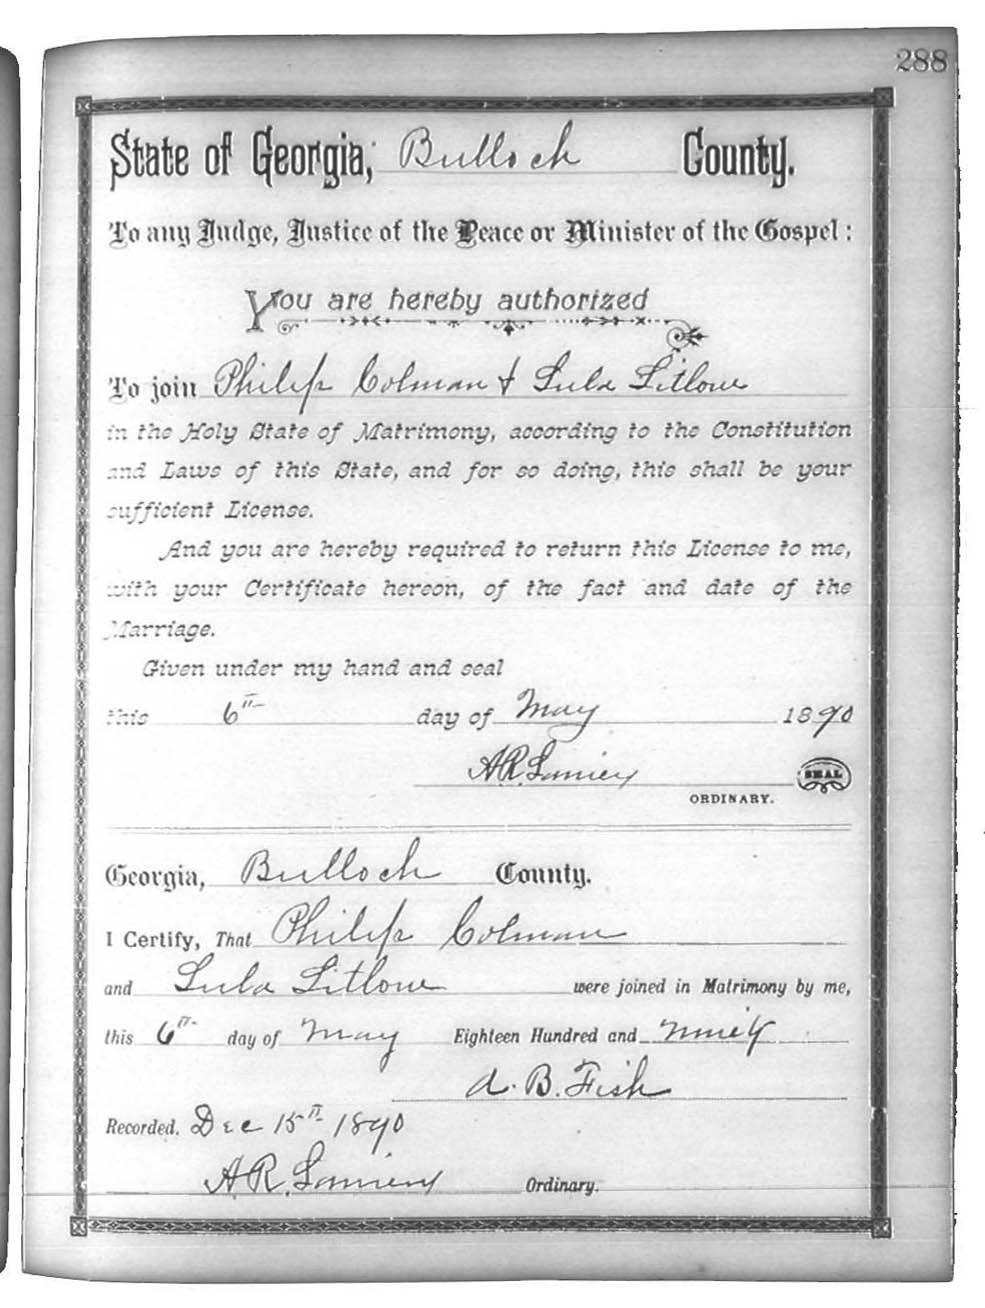 288
State of Georgia, Bulloch County.
To any Judge, Justice of the Peace or Minister of the Gospel:
You are hereby authorized
To join Philip Colman & Lula Litlow
in the Holy State of Matrimony, according to the Constitution
and Laws of this State, and for so doing, this shall be your
sufficient License.
And you are hereby required to return this License to me,
with your Certificate hereon, of the fact and date of the
Marriage.
Given under my hand and seal
this 6th day of May 1890
A.R. Lanier SEAL
ORDINARY.
Georgia, Bulloch County.
I Certify, That Philip Colman
and Lula Litlow were joined in Matrimony by me,
this 6th day of May Eighteen Hundred and Ninety
A. B. Fish
Recorded. Dec 15th 1890
A.R. Lanier Ordinary.